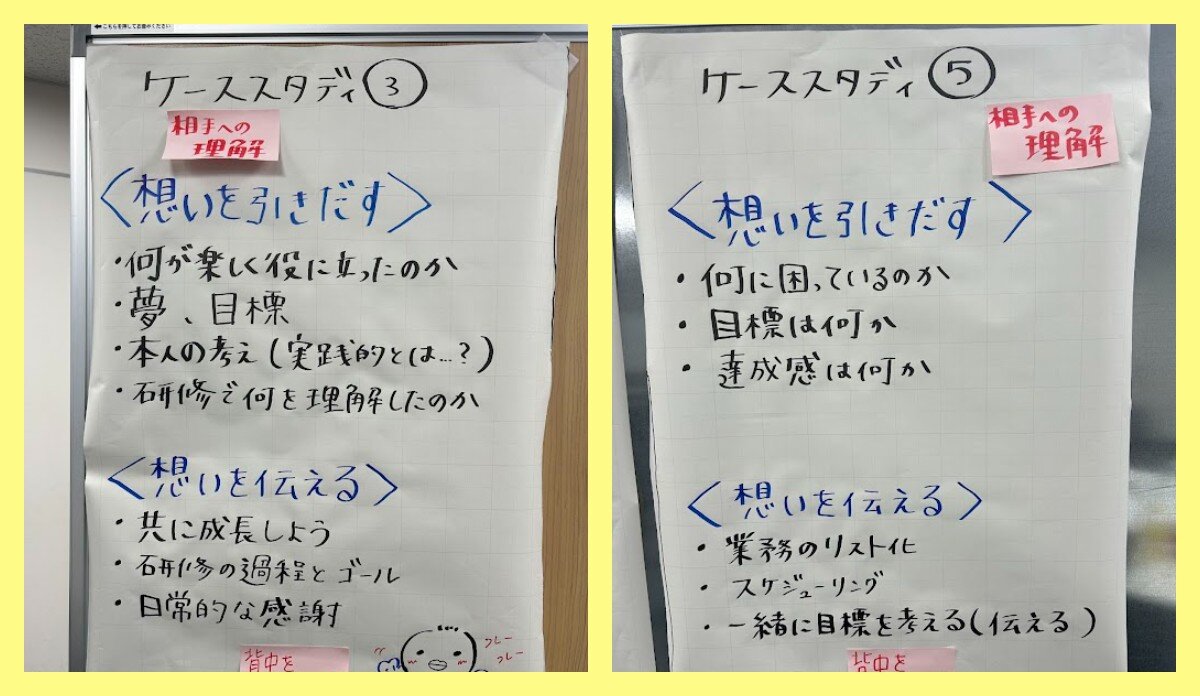 ←こちらを押してお進みください
ケーススタディ③
相手への
理解
〈想いを引きだす〉
・何が楽しく役に立ったのか
・夢、目標
・本人の考え(実践的とは…?)
・研修で何を理解したのか
〈想いを伝える〉
・共に成長しよう
・研修の過程とゴール
・日常的な感謝
フレー
フレー
背中を
ケーススタディ⑤
相手への
理解
〈想いを引きだす〉
・何に困っているのか
・目標は何か
・達成感は何か
〈想いを伝える〉
・業務のリスト化
・スケジューリング
・一緒に目標を考える(伝える)
背中を